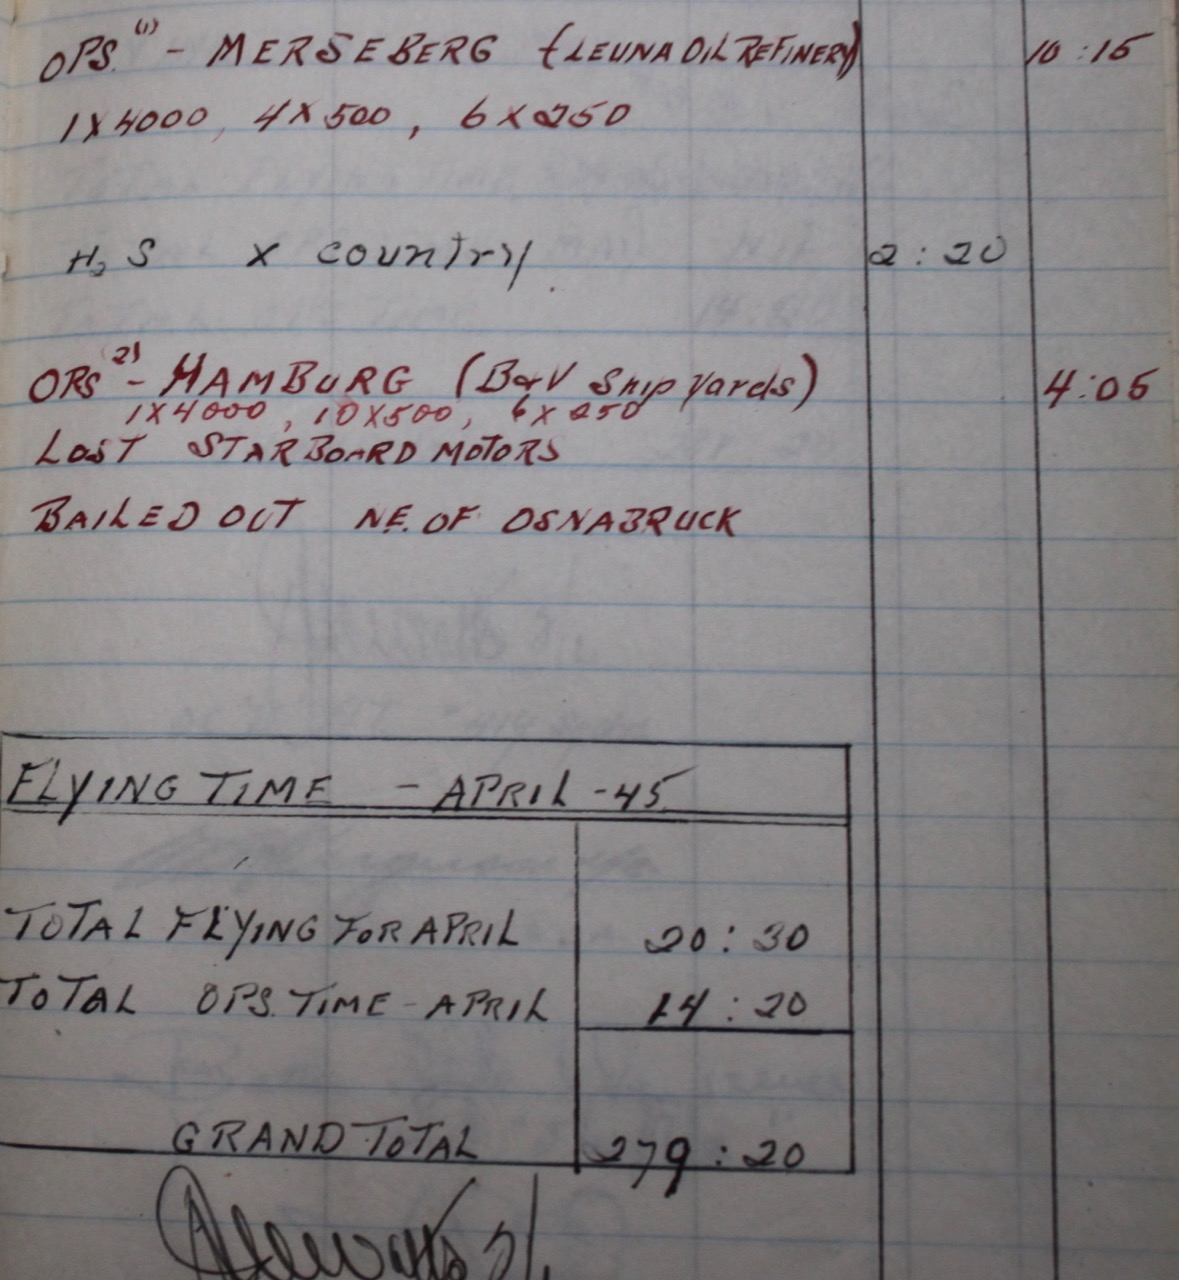 OPS. (1) - MERSEBERG (LEUNA OIL REFINERY) 10:15
1X4000, 4X500, 6X250
H2S X country. 2:20
OPS 2) - HAMBURG (B&V Ship yards) 4:05
1X4000, 10X500, 6X250
LOST STARBOARD MOTORS
BAILED OUT NE. OF OSNABRUCK
FLYING TIME - APRIL - 45
TOTAL FLYING FOR APRIL 20:30
TOTAL OPS. TIME - APRIL 14:20
GRAND TOTAL 279:20